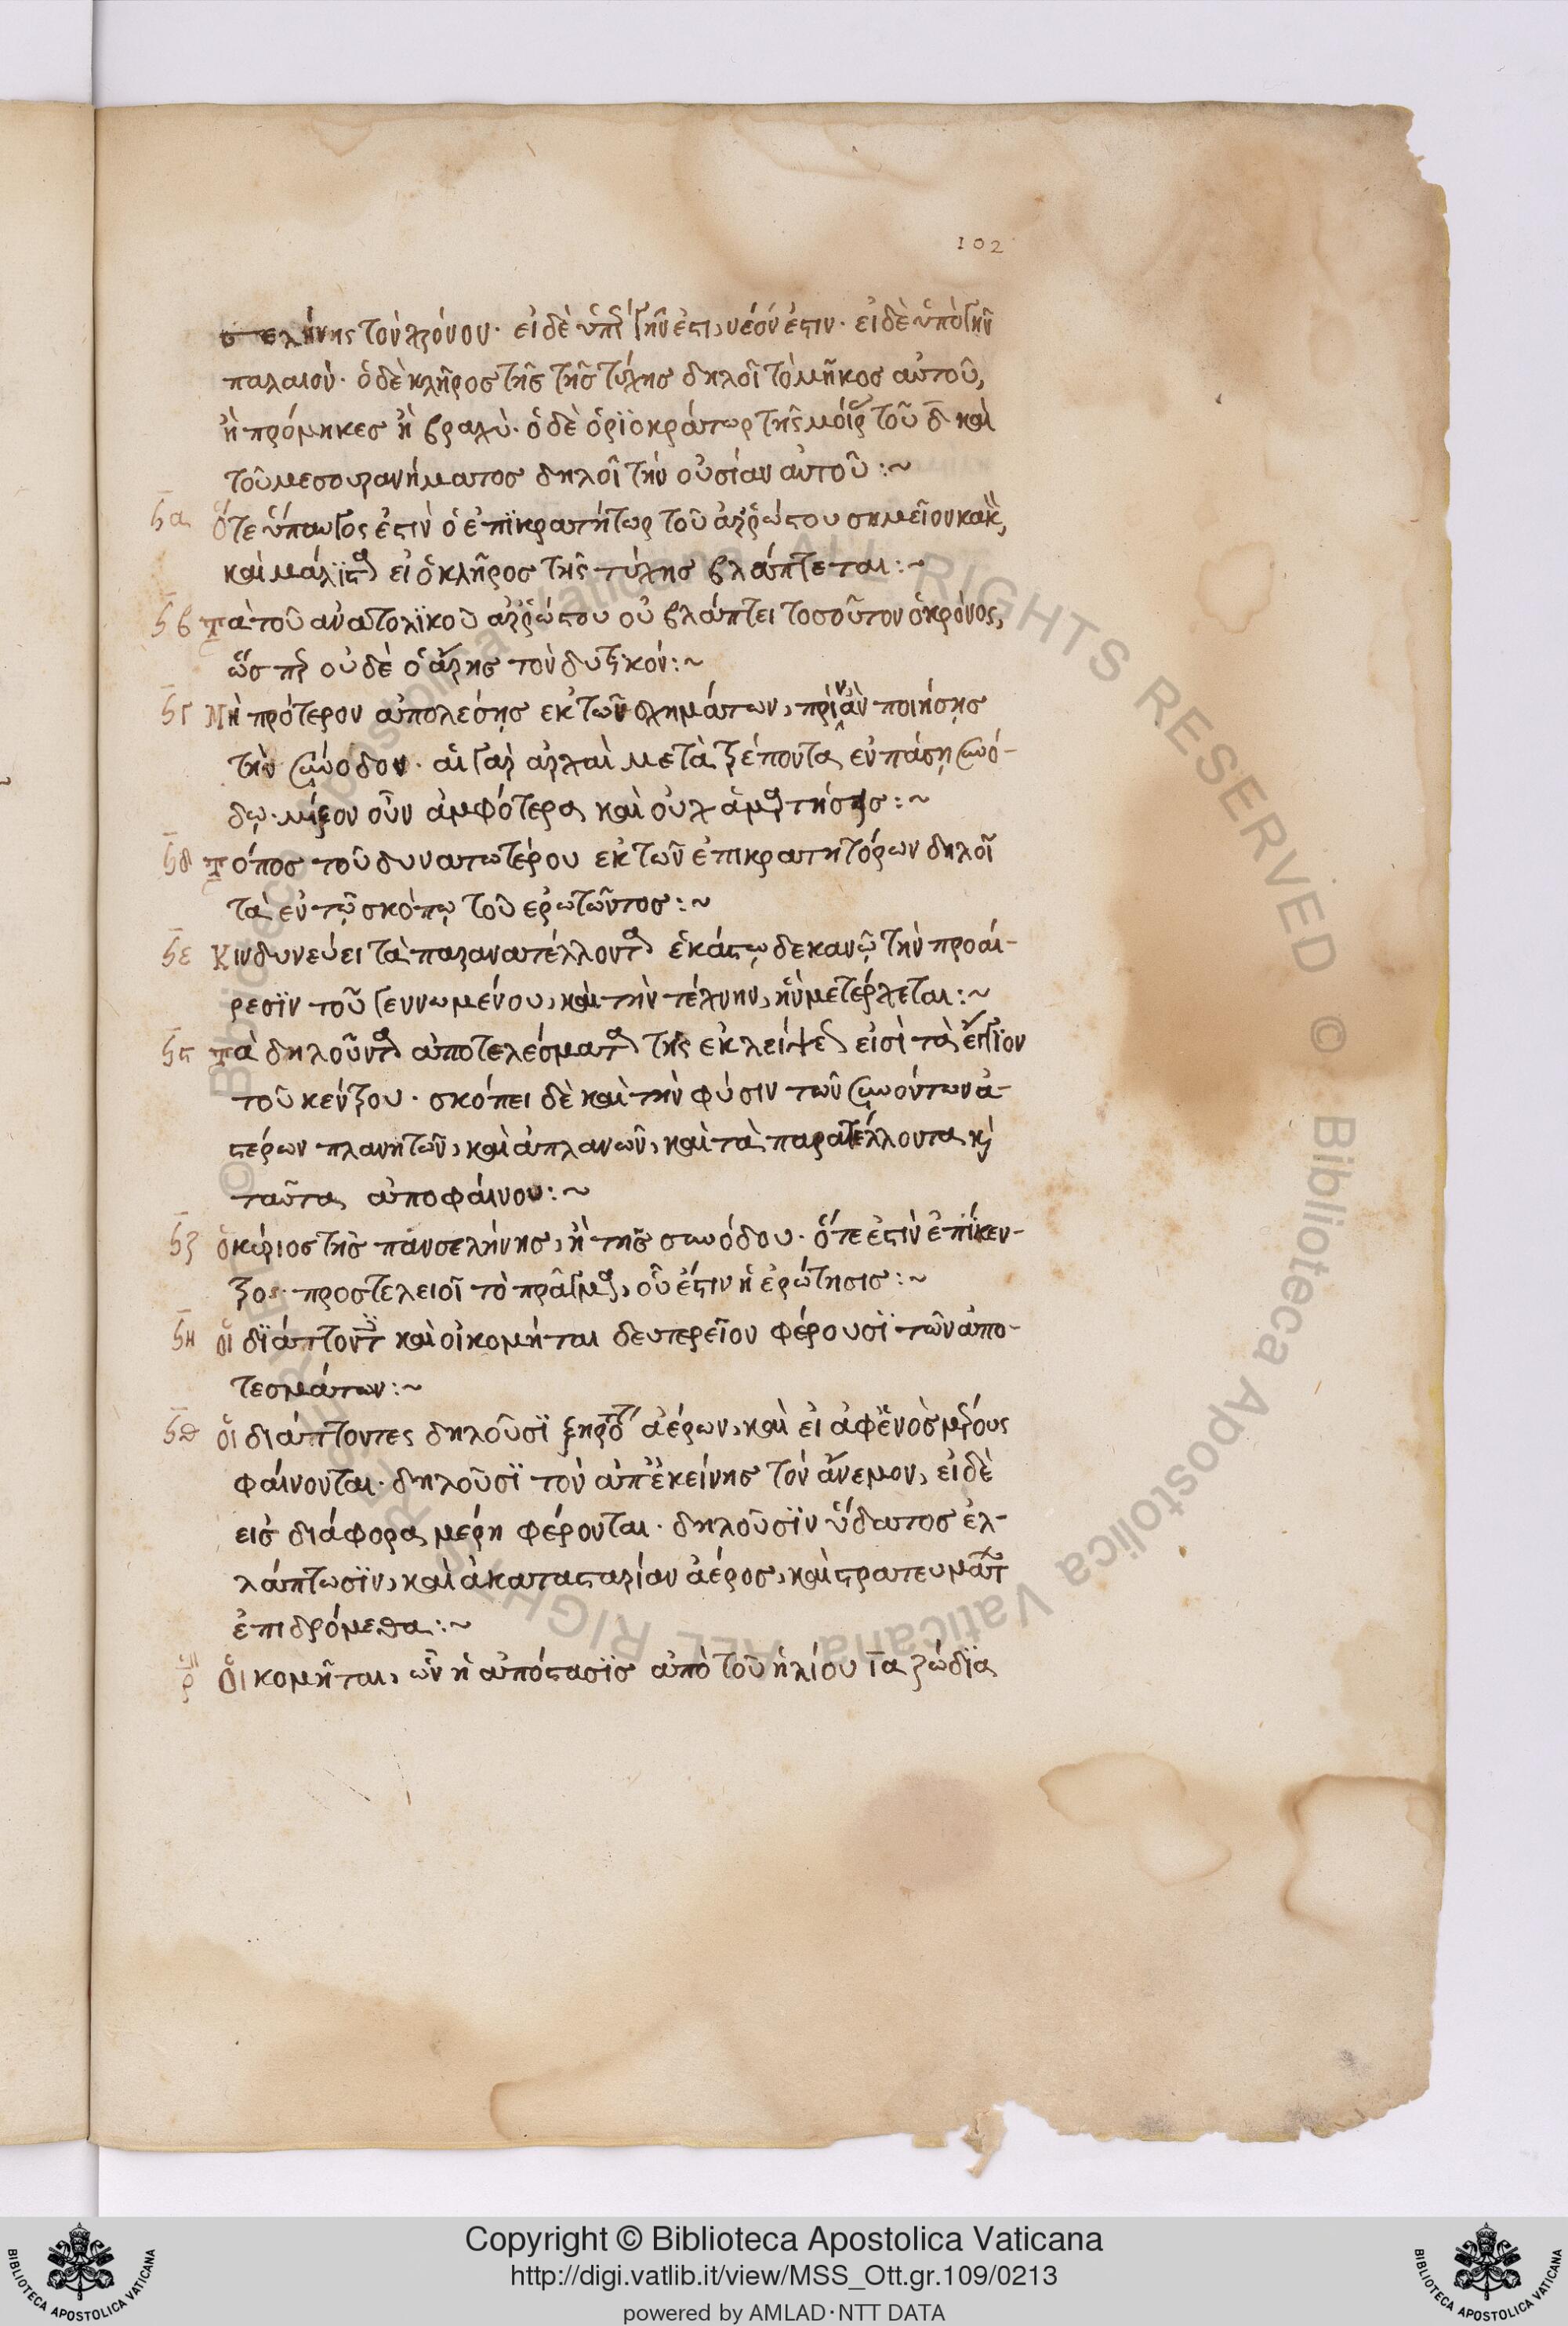 102
σελήνης τὸν χρόνον· εἰ δὲ ὑπὲρ γῆν ἐστι, νέον ἐστιν· εἰ δὲ ὑπὸ γῆν
παλαιον· ὁ δὲ κλῆρος τῆς τῆς τύχης δηλοῖ τὸ μῆκος αὐτοῦ,
ἢ πρόμηκες ἢ βραχὺ· ὁ δὲ ὁρϊοκράτωρ τῆς μοίρ τοῦ δ καὶ
τοῦ μεσουρανήματος δηλοῖ τὴν οὐσίαν αὐτοῦ :~
ϟα ὅτε ὕπαυγος ἐστιν ὁ ἐπϊκρατήτωρ τοῦ ἀρρώστου σημεῖον κακ,
καὶ μάλϊστα εἰ ὁ κλῆρος τῆς τύχης βλάπτεται :~
ϟβ τὰ τοῦ ἀνατολϊκοῦ ἀρρώστου οὐ βλάπτει τοσοῦτον ὁ κρόνος,
ὥσπερ οὐδὲ ὁ ἄρης τὸν δυτϊκόν :~
ϟγ Μὴ πρότερον ἀπολεσῃς ἐκ τῶν σχημάτων, πρὶν ἂν ποιήσῃς
τὴν σύνοδον· αἱ γὰρ ἀρχαὶ μετατρέπονται ἐν πάσῃ συνό-
δῳ· μίξον οὖν ἀμφότερα καὶ οὐχ ἁμαρτήσῃς :~
ϟδ Τόπος τοῦ δυνατωτέρου ἐκ τῶν ἐπικρατητόρων δηλοῖ
τὰ ἐν τῷ σκόπῳ τοῦ ἐρωτῶντος :~
ϟε Κινδυνεύει τὰ παρανατέλλοντα ἑκάστῳ δεκανῷ τὴν προαί-
ρεσϊν τοῦ γεννωμένου, καὶ τὴν τέχνην, ἣν μετέρχεται :~
ϟϛ Τὰ δηλοῦντα ἀποτελέσματα τῆς ἐκλείψεως εἰσὶ τὰ ἔγγϊον
τοῦ κέντρου· σκόπει δὲ καὶ τὴν φύσιν τῶν συνόντων ἀ-
στέρων πλανητῶν, καὶ ἀπλανῶν, καὶ τὰ παρατέλλοντα κὶ
ταῦτα ἀποφαίνου :~
ϟζ ὁ κύριος τῆς πανσελήνης, ἢ τῆς συνόδου· ὅτε ἐστιν ἐπίκεν-
τρος· προστελειοῖ τὸ πρᾶγμα, οὗ ἐστιν ἡ ἐρώτησις :~
ϟη οἱ δϊάττοντ καὶ οἱ κομήται δευτερεῖον φέρουσϊ τῶν ἀπο-
τεσμάτων :~
ϟθ οἱ διάττοντες δηλοῦσϊ ξηρότ ἀέρων, καὶ εἰ ἀφ ἑνὸς μέρους
φαίνονται· δηλοῦσϊ τὸν ἀπ ἐκείνης τὸν ἄνεμον, εἰ δὲ
εἰς διάφορα μέρη φέρονται· δηλοῦσϊν ὕδατος ἐλ-
λάπτωσϊν, καὶ ἀκαταστασίαν ἀέρος, καὶ στρατευμάτ
ἐπιδρόμεθα :~
ρ Οἱ κομῆται, ὧν ἡ ἀπόστασϊς ἀπὸ τοῦ ἡλίου ια ζώδϊα
© Biblioteca Apostolica Vaticana ALL RIGHTS RESERVED © Biblioteca Apostolica Vaticana ALL RIGHTS RESERVED
Copyright © Biblioteca Apostolica Vaticana
http://digi.vatlib.it/view/MSS_Ott.gr.109/0213
powered by AMLAD·NTT DATA
BIBLIOTECA APOSTOLICA VATICANA
BIBLIOTECA APOSTOLICA VATICANA